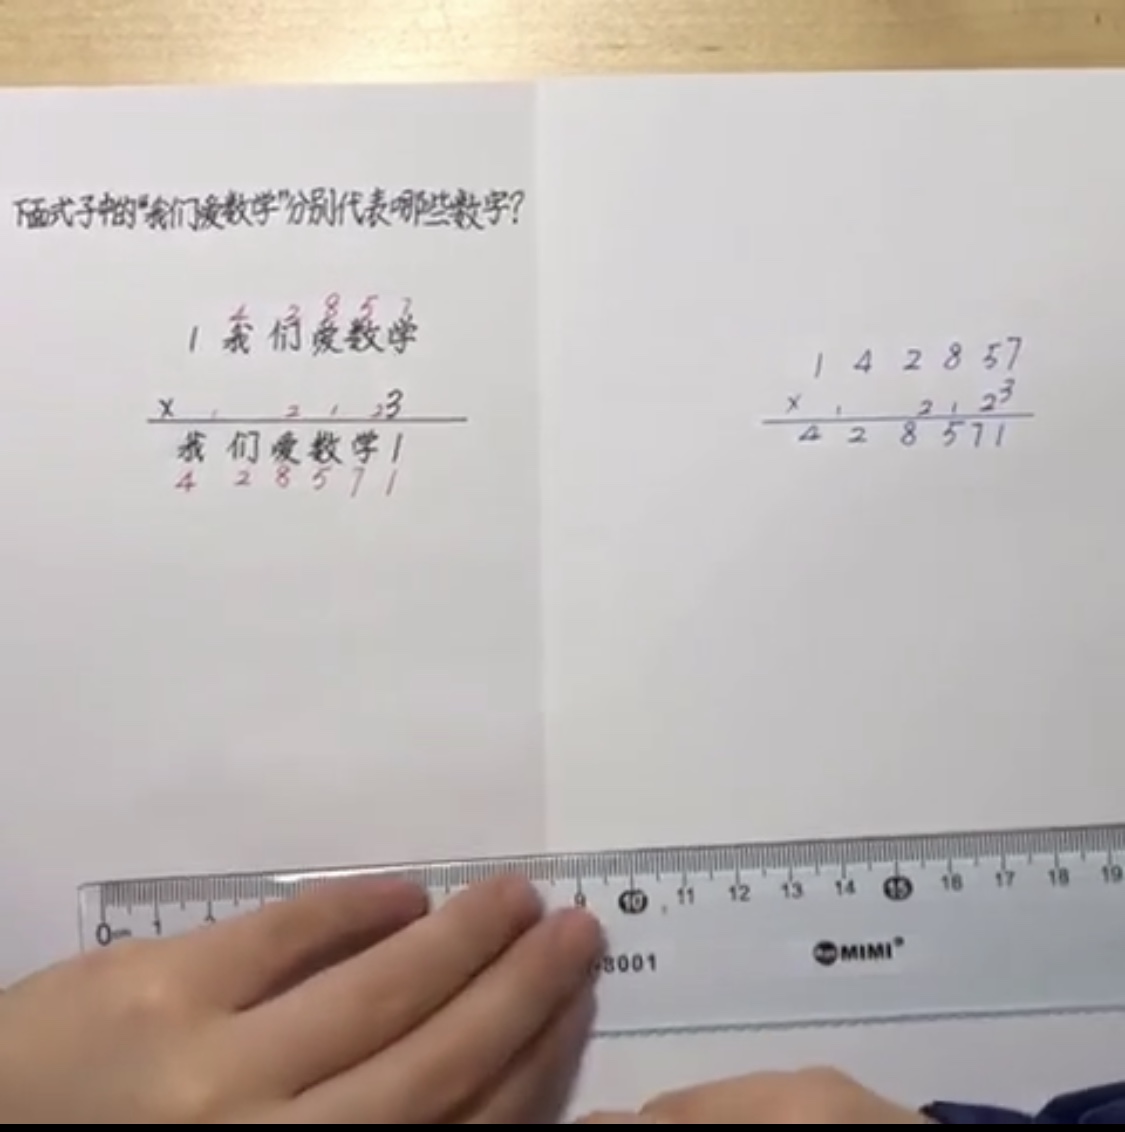 下面式子中的“我们爱数学”分别代表哪些数字?
4 2 8 5 7
1 我们爱数学
× 1 2 1 2 3
我们爱数学1
4 2 8 5 7 1
1 4 2 8 5 7
× 1 2 1 2 3
4 2 8 5 7 1
0cm 1 9 10 11 12 13 14 15 16 17 18 19
8001
MIMI